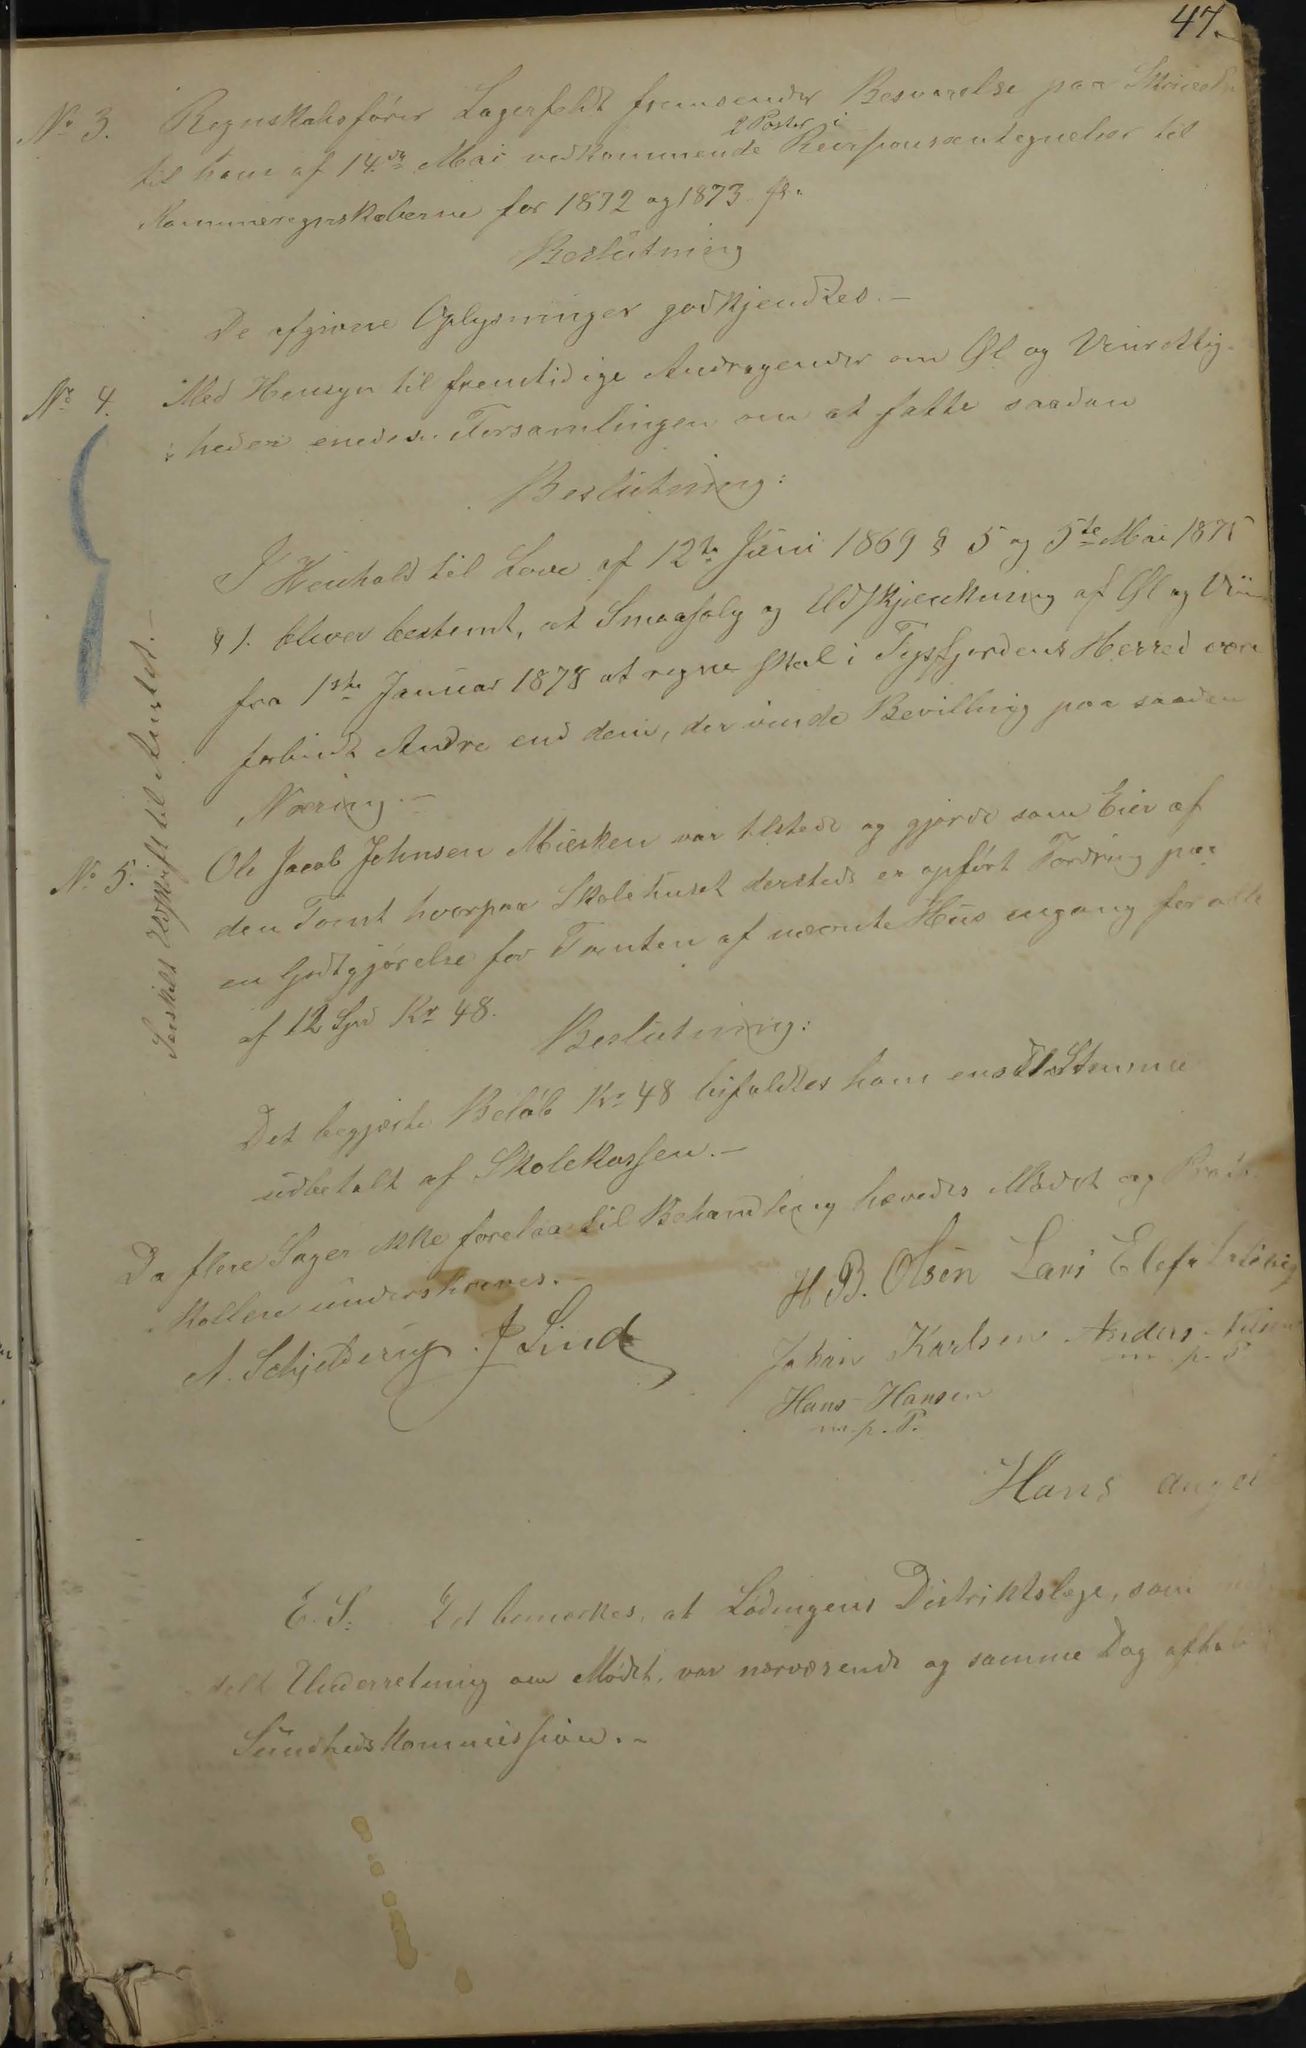 47.
No 3. Regnskabsfører Lagerfeldt fremsender Besvarelse paa Skrivelse
2 Poster i
til ham af 14de Mai vedkommende Revisionsantegnelser til
Kommuneregnskaberne for 1872 og 1873.
Beslutning
De afgivne Oplysninger godkjendtes. —
No 4. Med Hensyn til fremtidige Andragender om Øl og Vinrettig-
heder enedes Forsamlingen om at fatte saadan
Beslutning:
I Henhold til Love af 12te Juni 1869 § 5 og 5te Mai 1875
§ 1. bliver bestemt, at Smaasalg og Udskjenkning af Øl og Viin
fra 1ste Januar 1878 at regne skal i Tysfjordens Herred være
forbudt Andre end dem, der vinde Bevilling paa saadan
Næring. —
Særskilt Udskrift til Amtet. —
No 5. Ole Jacob Johnsen Misken var tilstede og gjorde som Eier af
den Tomt hvorpaa Skolehuset dersteds er opført Fordring paa
en Godtgjørelse for Tomten af nævnte Hus engang for alle
af 12 Spd Kr 48.
Beslutning:
Det begjærte Beløb Kr 48 bifaldtes ham Stemme
udbetalt af Skolekassen. —
Da flere Sager ikke forelaa til Behandling hævedes Mødet og Proto-
kollen underskreves.
H. B. Olsen Lars Elef
A. Schjelderup. J Lind
Johan Karlsen Anders Nilsen
m. p. P
Hans Hansen
m. p. P.
Hans Angel
E. S. Det bemærkes, at Lødingens Distriktslæge, som med
delt Underretning om Mødet, var nærværende og samme Dag afholdt
Sundhedskommission. —